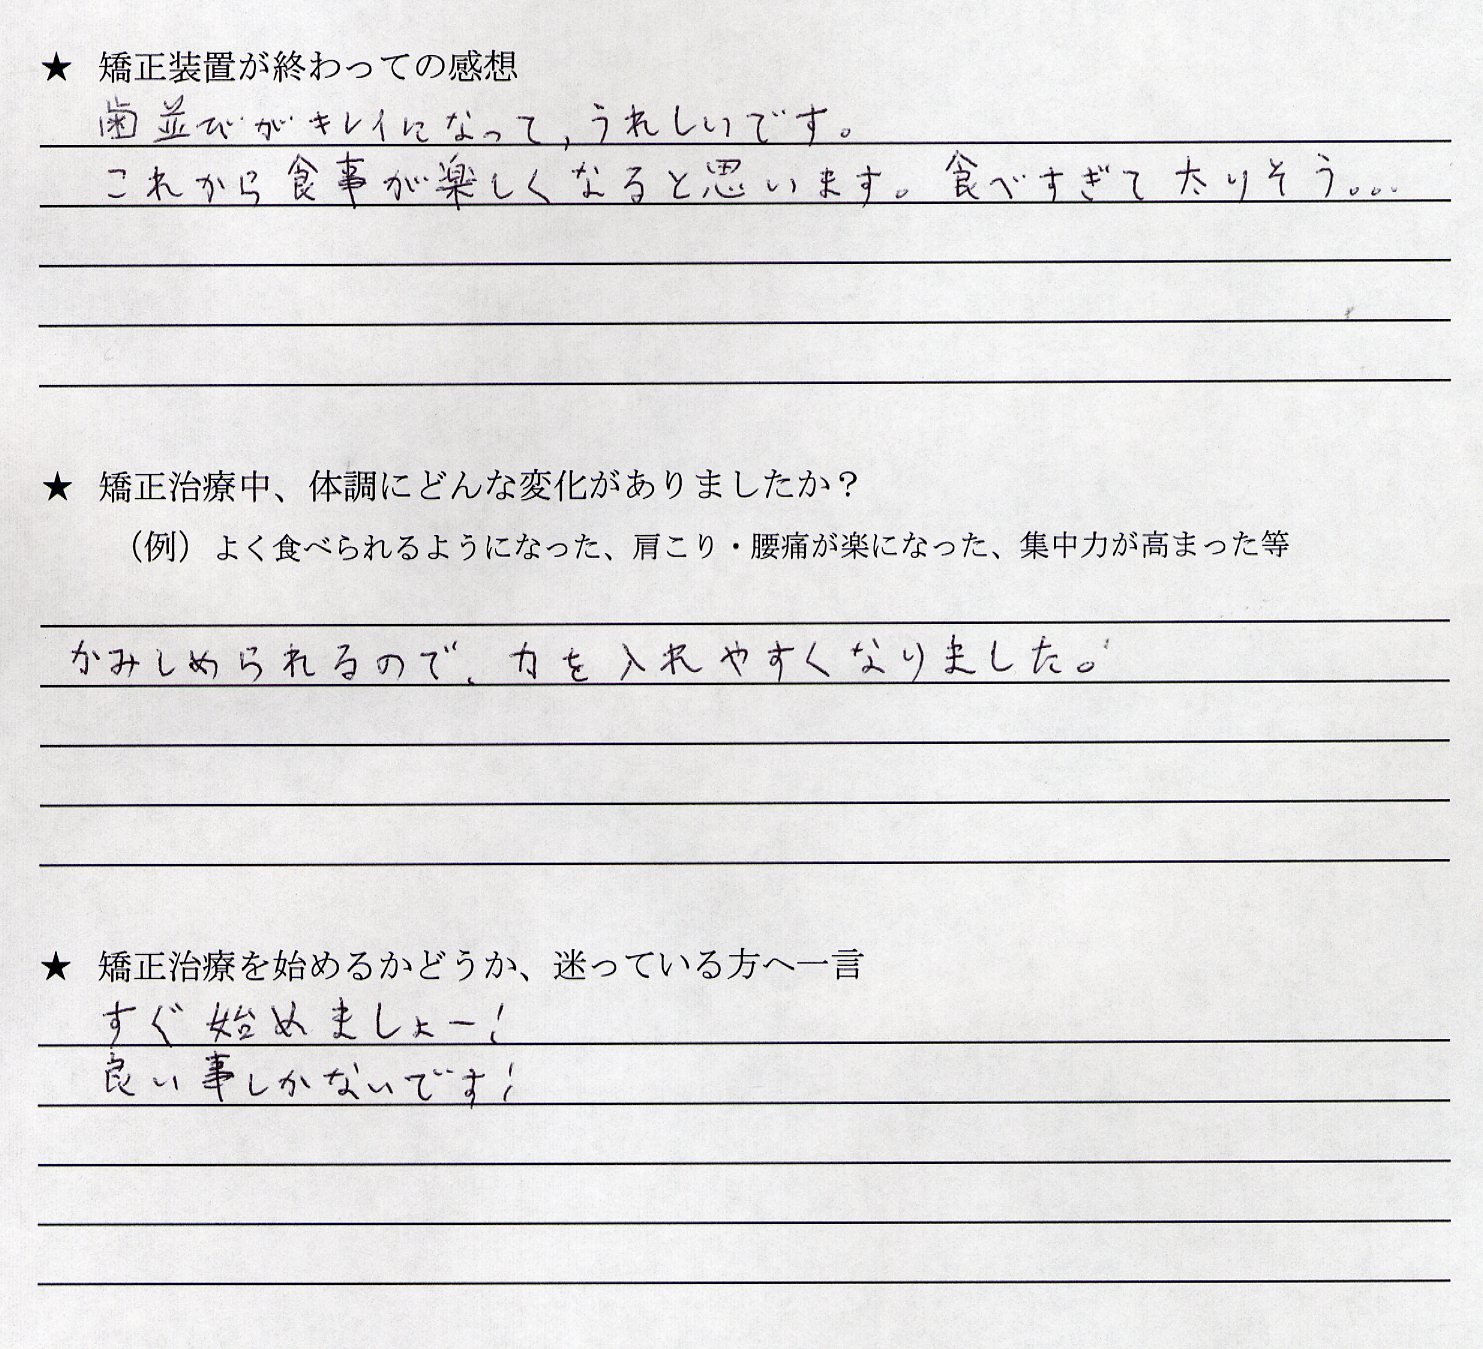 ★ 矯正装置が終わっての感想
歯並びがキレイになって,うれしいです。
これから食事が楽しくなると思います。食べすぎて太りそう...
★ 矯正治療中、体調にどんな変化がありましたか？
（例）よく食べられるようになった、肩こり・腰痛が楽になった、集中力が高まった等
かみしめられるので、力を入れやすくなりました。
★ 矯正治療を始めるかどうか、迷っている方へ一言
すぐ始めましょー!
良い事しかないです!